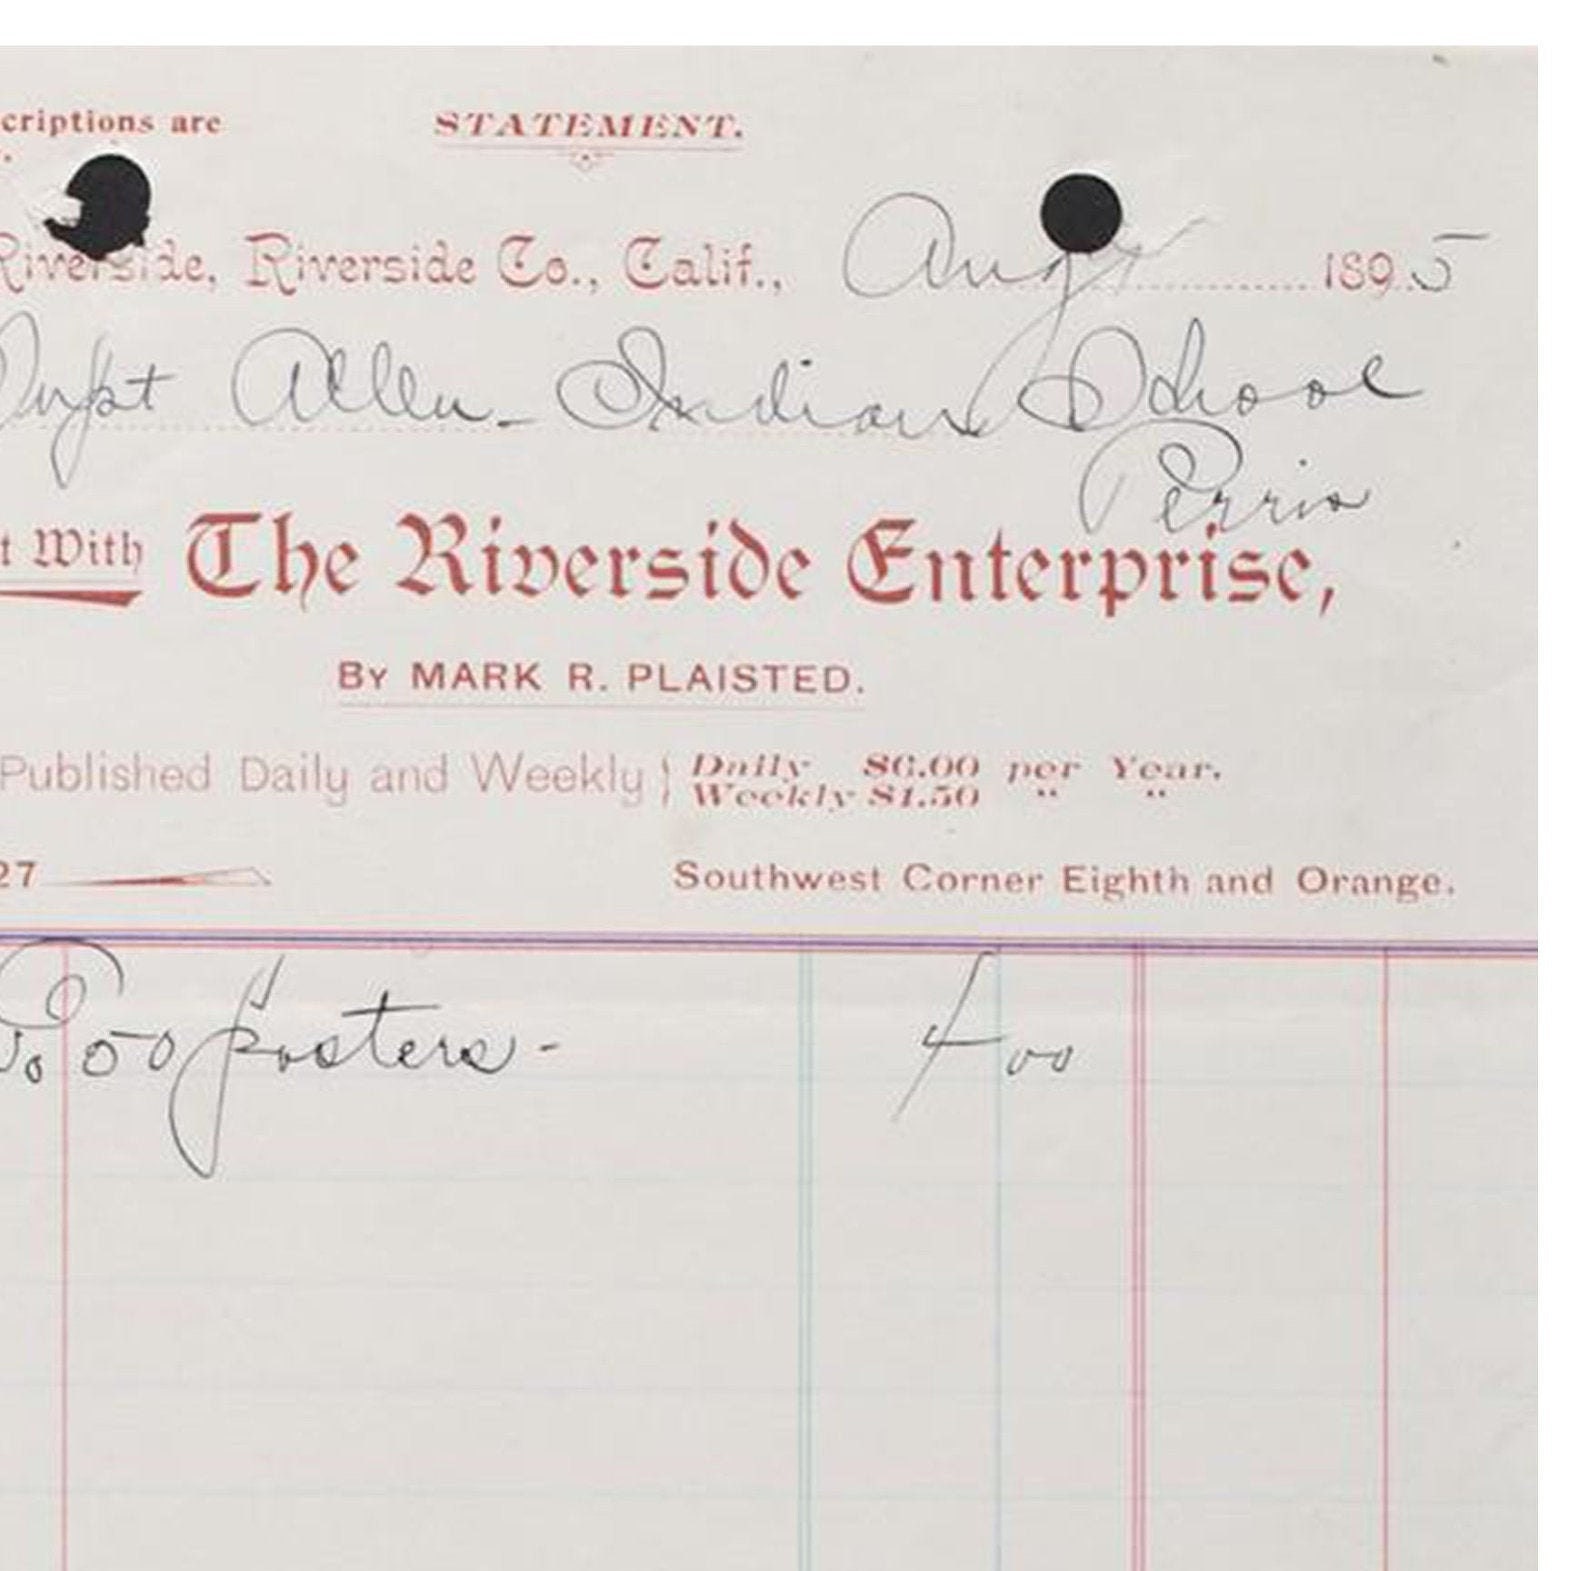 criptions are STATEMENT.
Riverside, Riverside Co., Calif., Aug 1895
Supt Allen - Indian School
Perris
t With The Riverside Enterprise,
By MARK R. PLAISTED.
Published Daily and Weekly } Daily $6.00 per Year.
Weekly $1.50 " "
27 Southwest Corner Eighth and Orange.
500 posters - 4 00